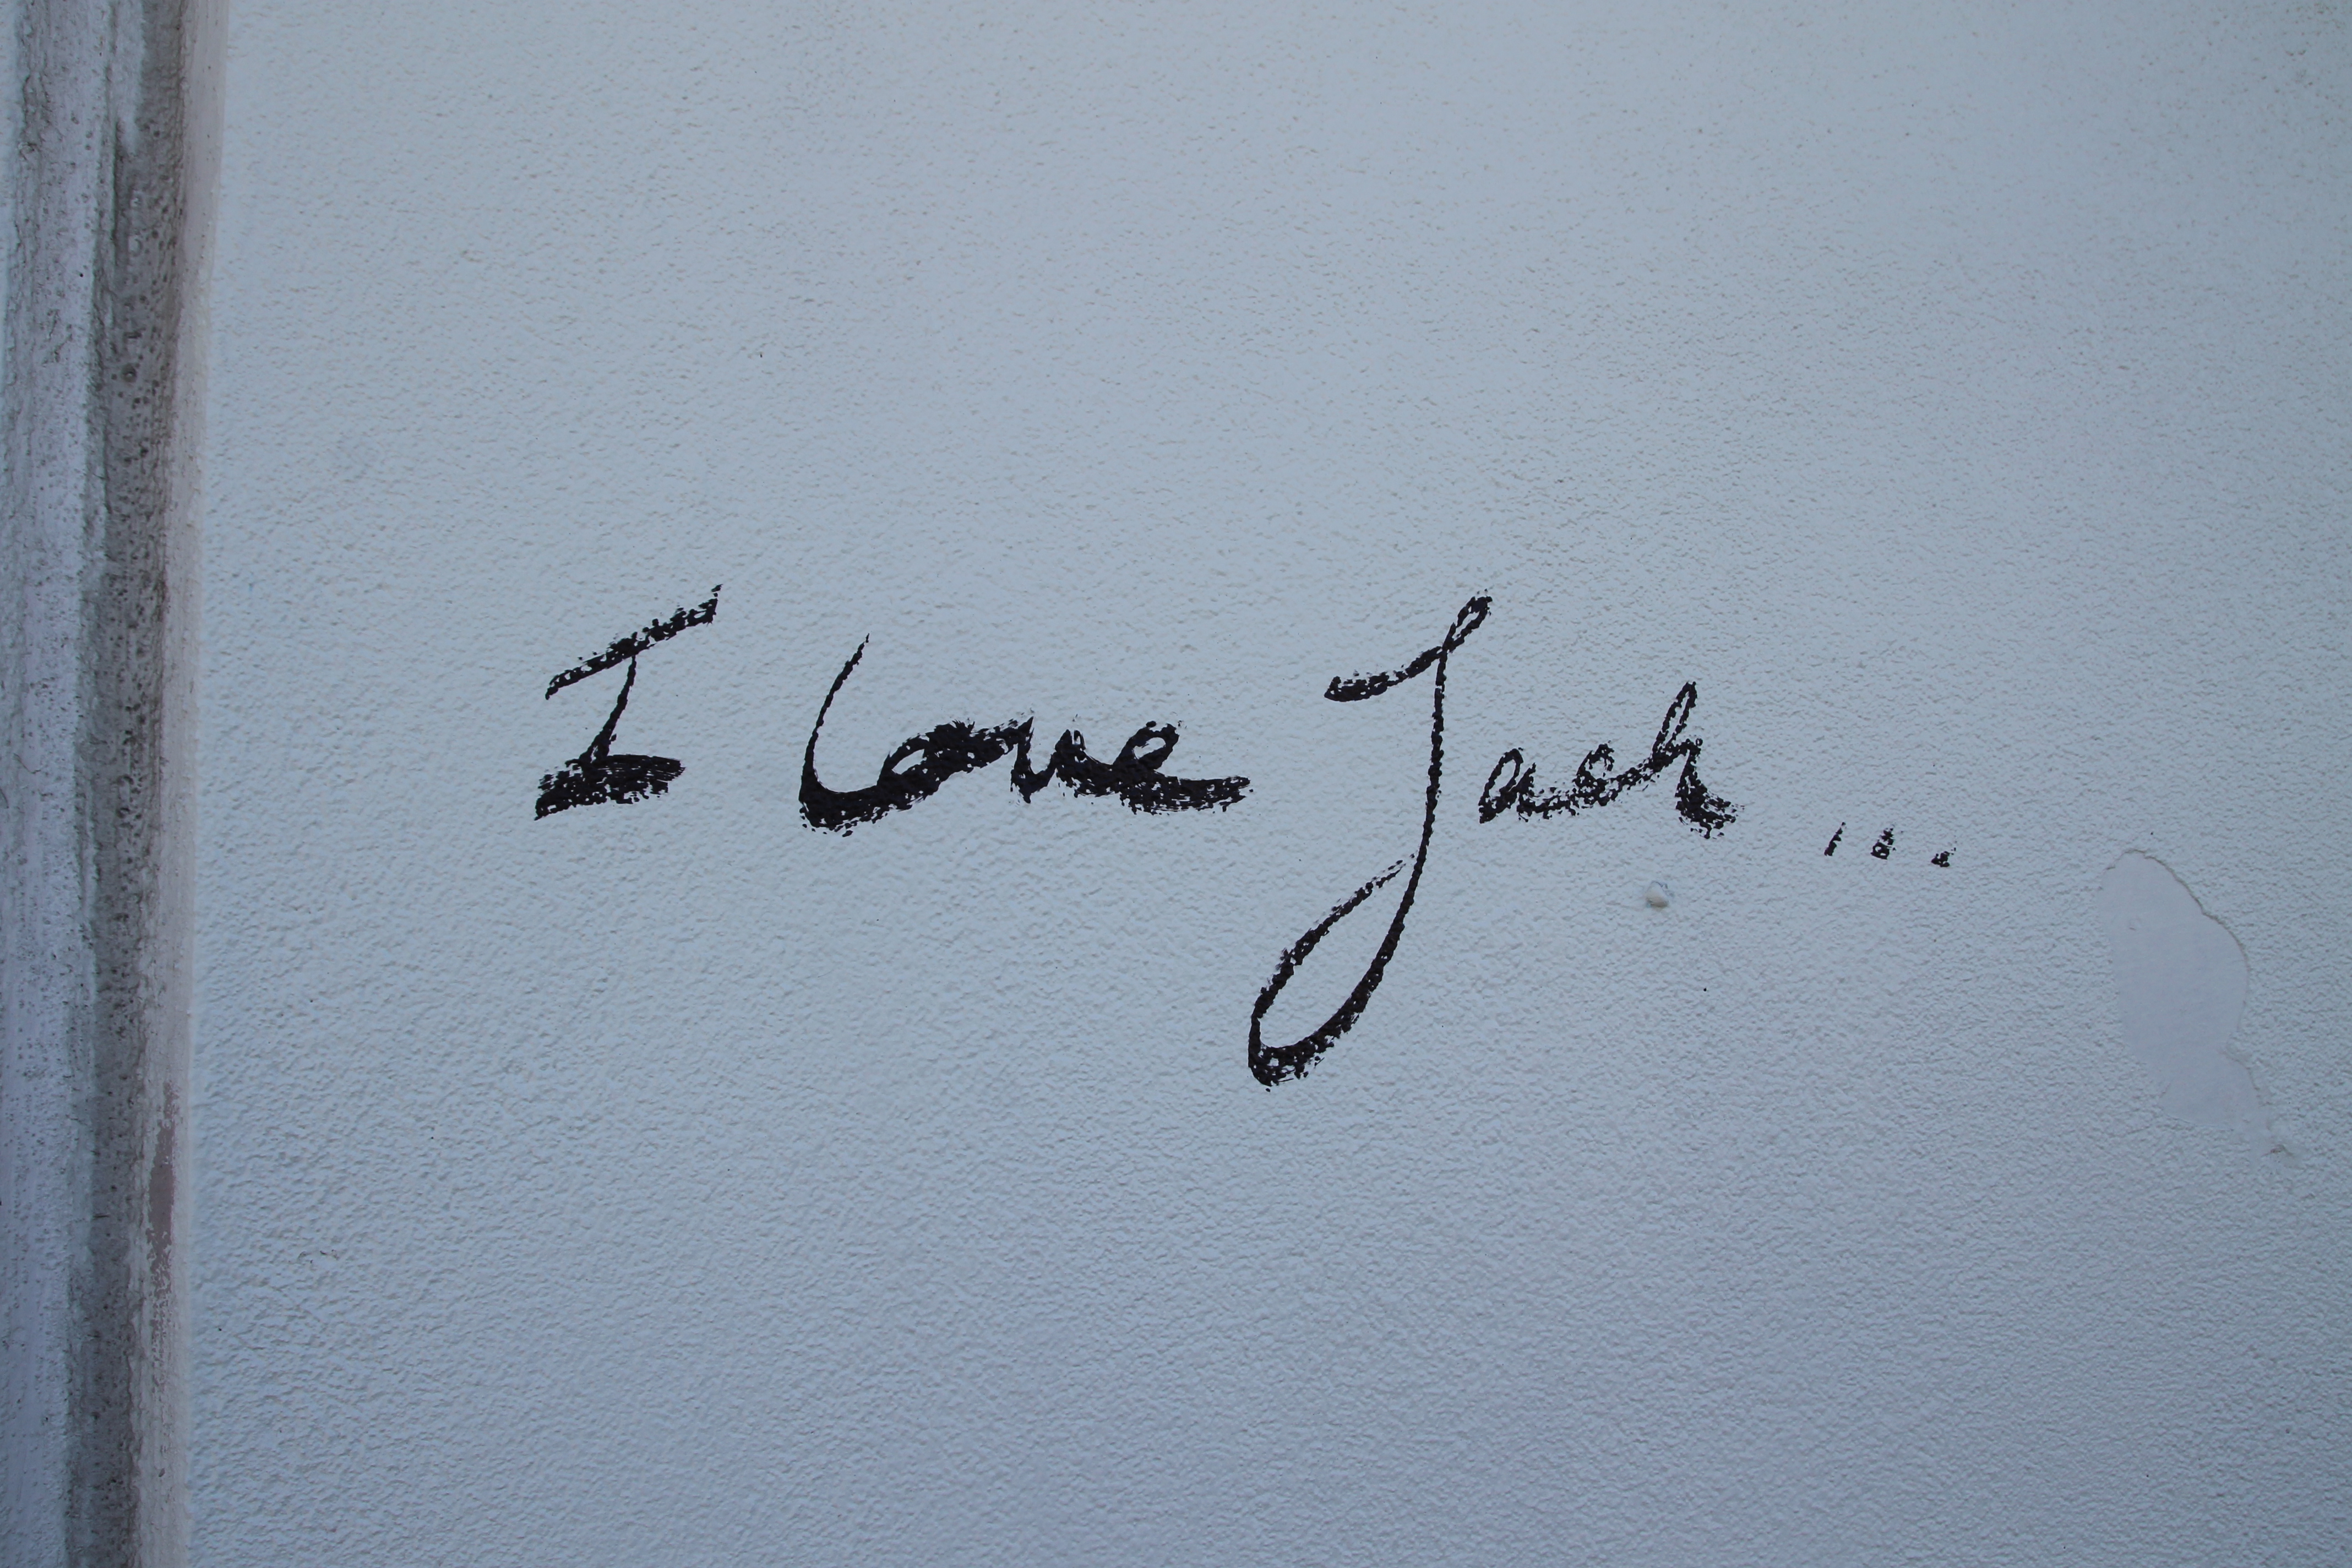 I love Jack...